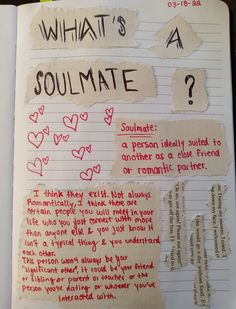 03-18-22
WHAT'S
A
SOULMATE
?
Soulmate:
a person ideally suited to
another as a close friend
or romantic partner.
I think they exist. Not always
Romantically, I think there are
certain people you will meet in your
life who you just connect with more
than anyone else & you just know it
isn't a typical thing & you understand
each other.
This person won't always be your
"significant other", it could be your friend
or sibling or parent or teacher or the
person you're dating or whatever you've
interacted with.